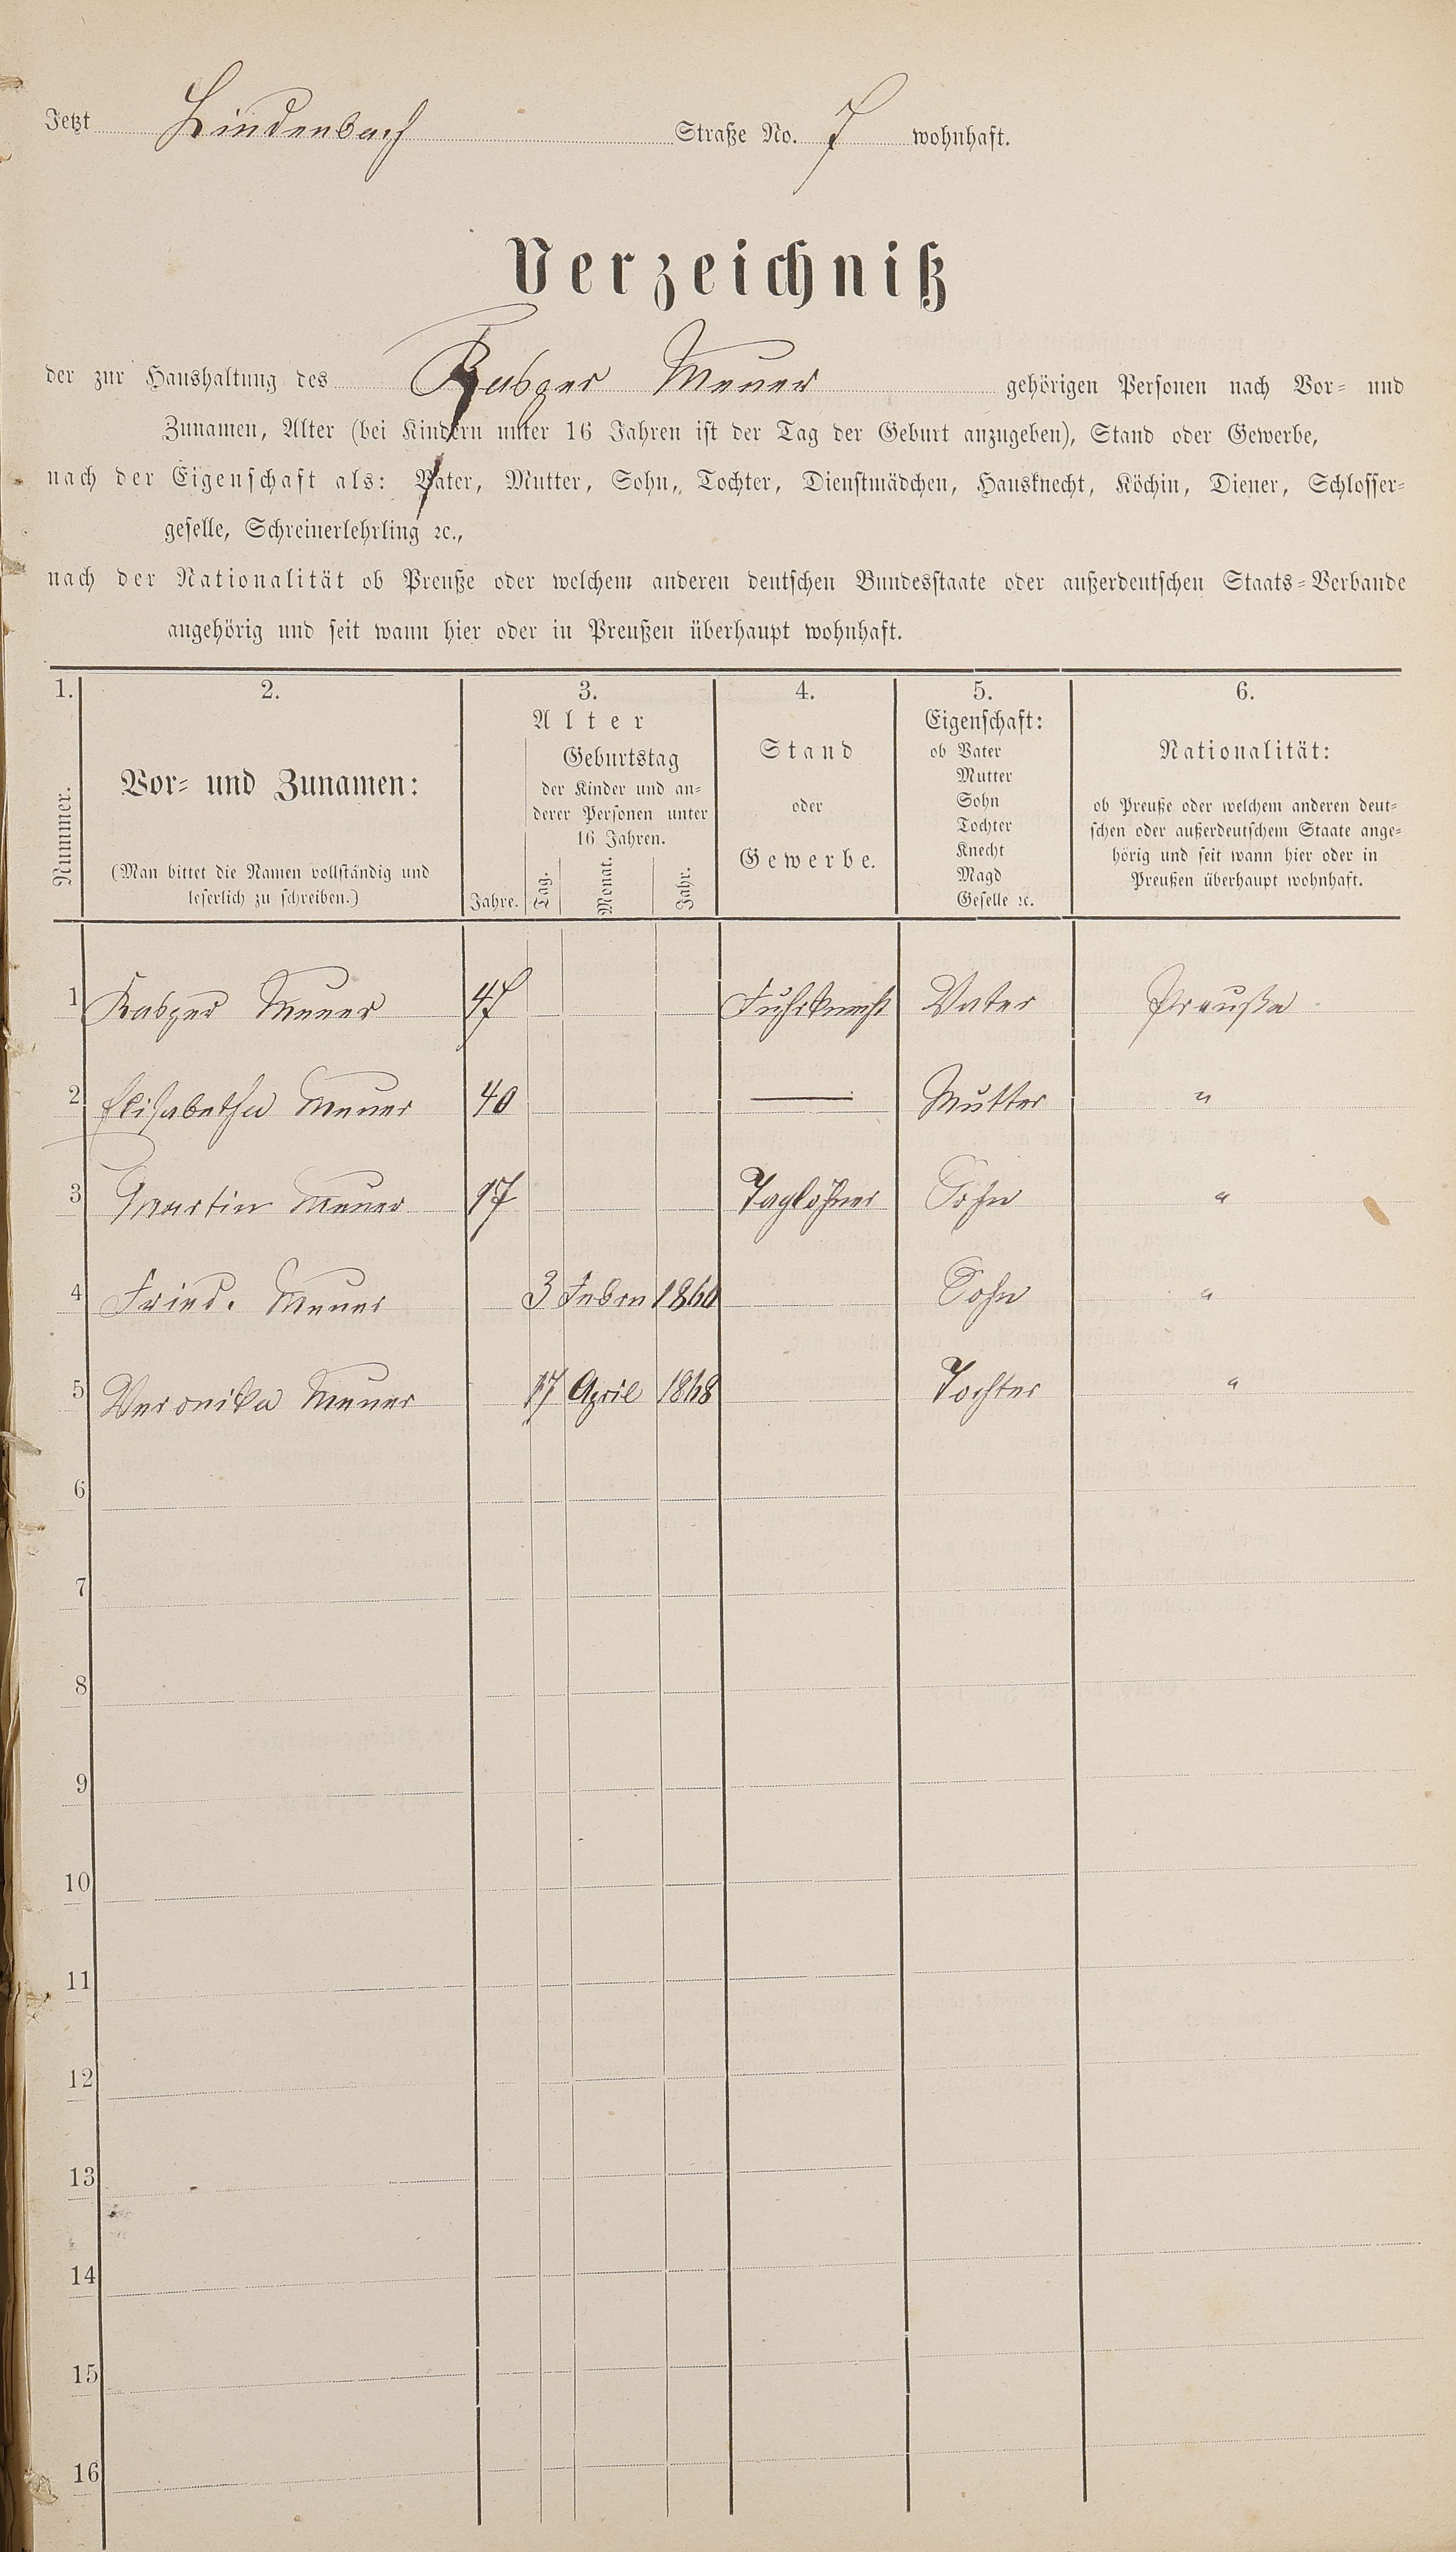 Jetzt Lindenbach Straße No. 7 wohnhaft.
Verzeichniß
der zur Haushaltung des Kasper Meuer gehörigen Personen nach Vor- und
Zunamen, Alter (bei Kindern unter 16 Jahren ist der Tag der Geburt anzugeben), Stand oder Gewerbe,
nach der Eigenschaft als: Vater, Mutter, Sohn, Tochter, Dienstmädchen, Hausknecht, Köchin, Diener, Schlosser-
geselle, Schreinerlehrling ꝛc.,
nach der Nationalität ob Preuße oder welchem anderen deutschen Bundesstaate oder außerdeutschen Staats-Verbande
angehörig und seit wann hier oder in Preußen überhaupt wohnhaft.
1.
Nummer.
2.
Vor- und Zunamen:
(Man bittet die Namen vollständig und
leserlich zu schreiben.)
3.
Alter
Jahre.
Geburtstag
der Kinder und an-
derer Personen unter
16 Jahren.
Tag. Monat. Jahr.
4.
Stand
oder
Gewerbe.
5.
Eigenschaft:
ob Vater
Mutter
Sohn
Tochter
Knecht
Magd
Geselle ꝛc.
6.
Nationalität:
ob Preuße oder welchem anderen deut-
schen oder außerdeutschem Staate ange-
hörig und seit wann hier oder in
Preußen überhaupt wohnhaft.
1 Kasper Meuer 47 Fuhrknecht Vater Preuße
2 Elisabetha Meuer 40 — Mutter "
3 Martin Meuer 17 Taglöhner Sohn "
4 Fried. Meuer 3 1860 Sohn "
5 Veronika Meuer 17 April 1868 Tochter "
6
7
8
9
10
11
12
13
14
15
16